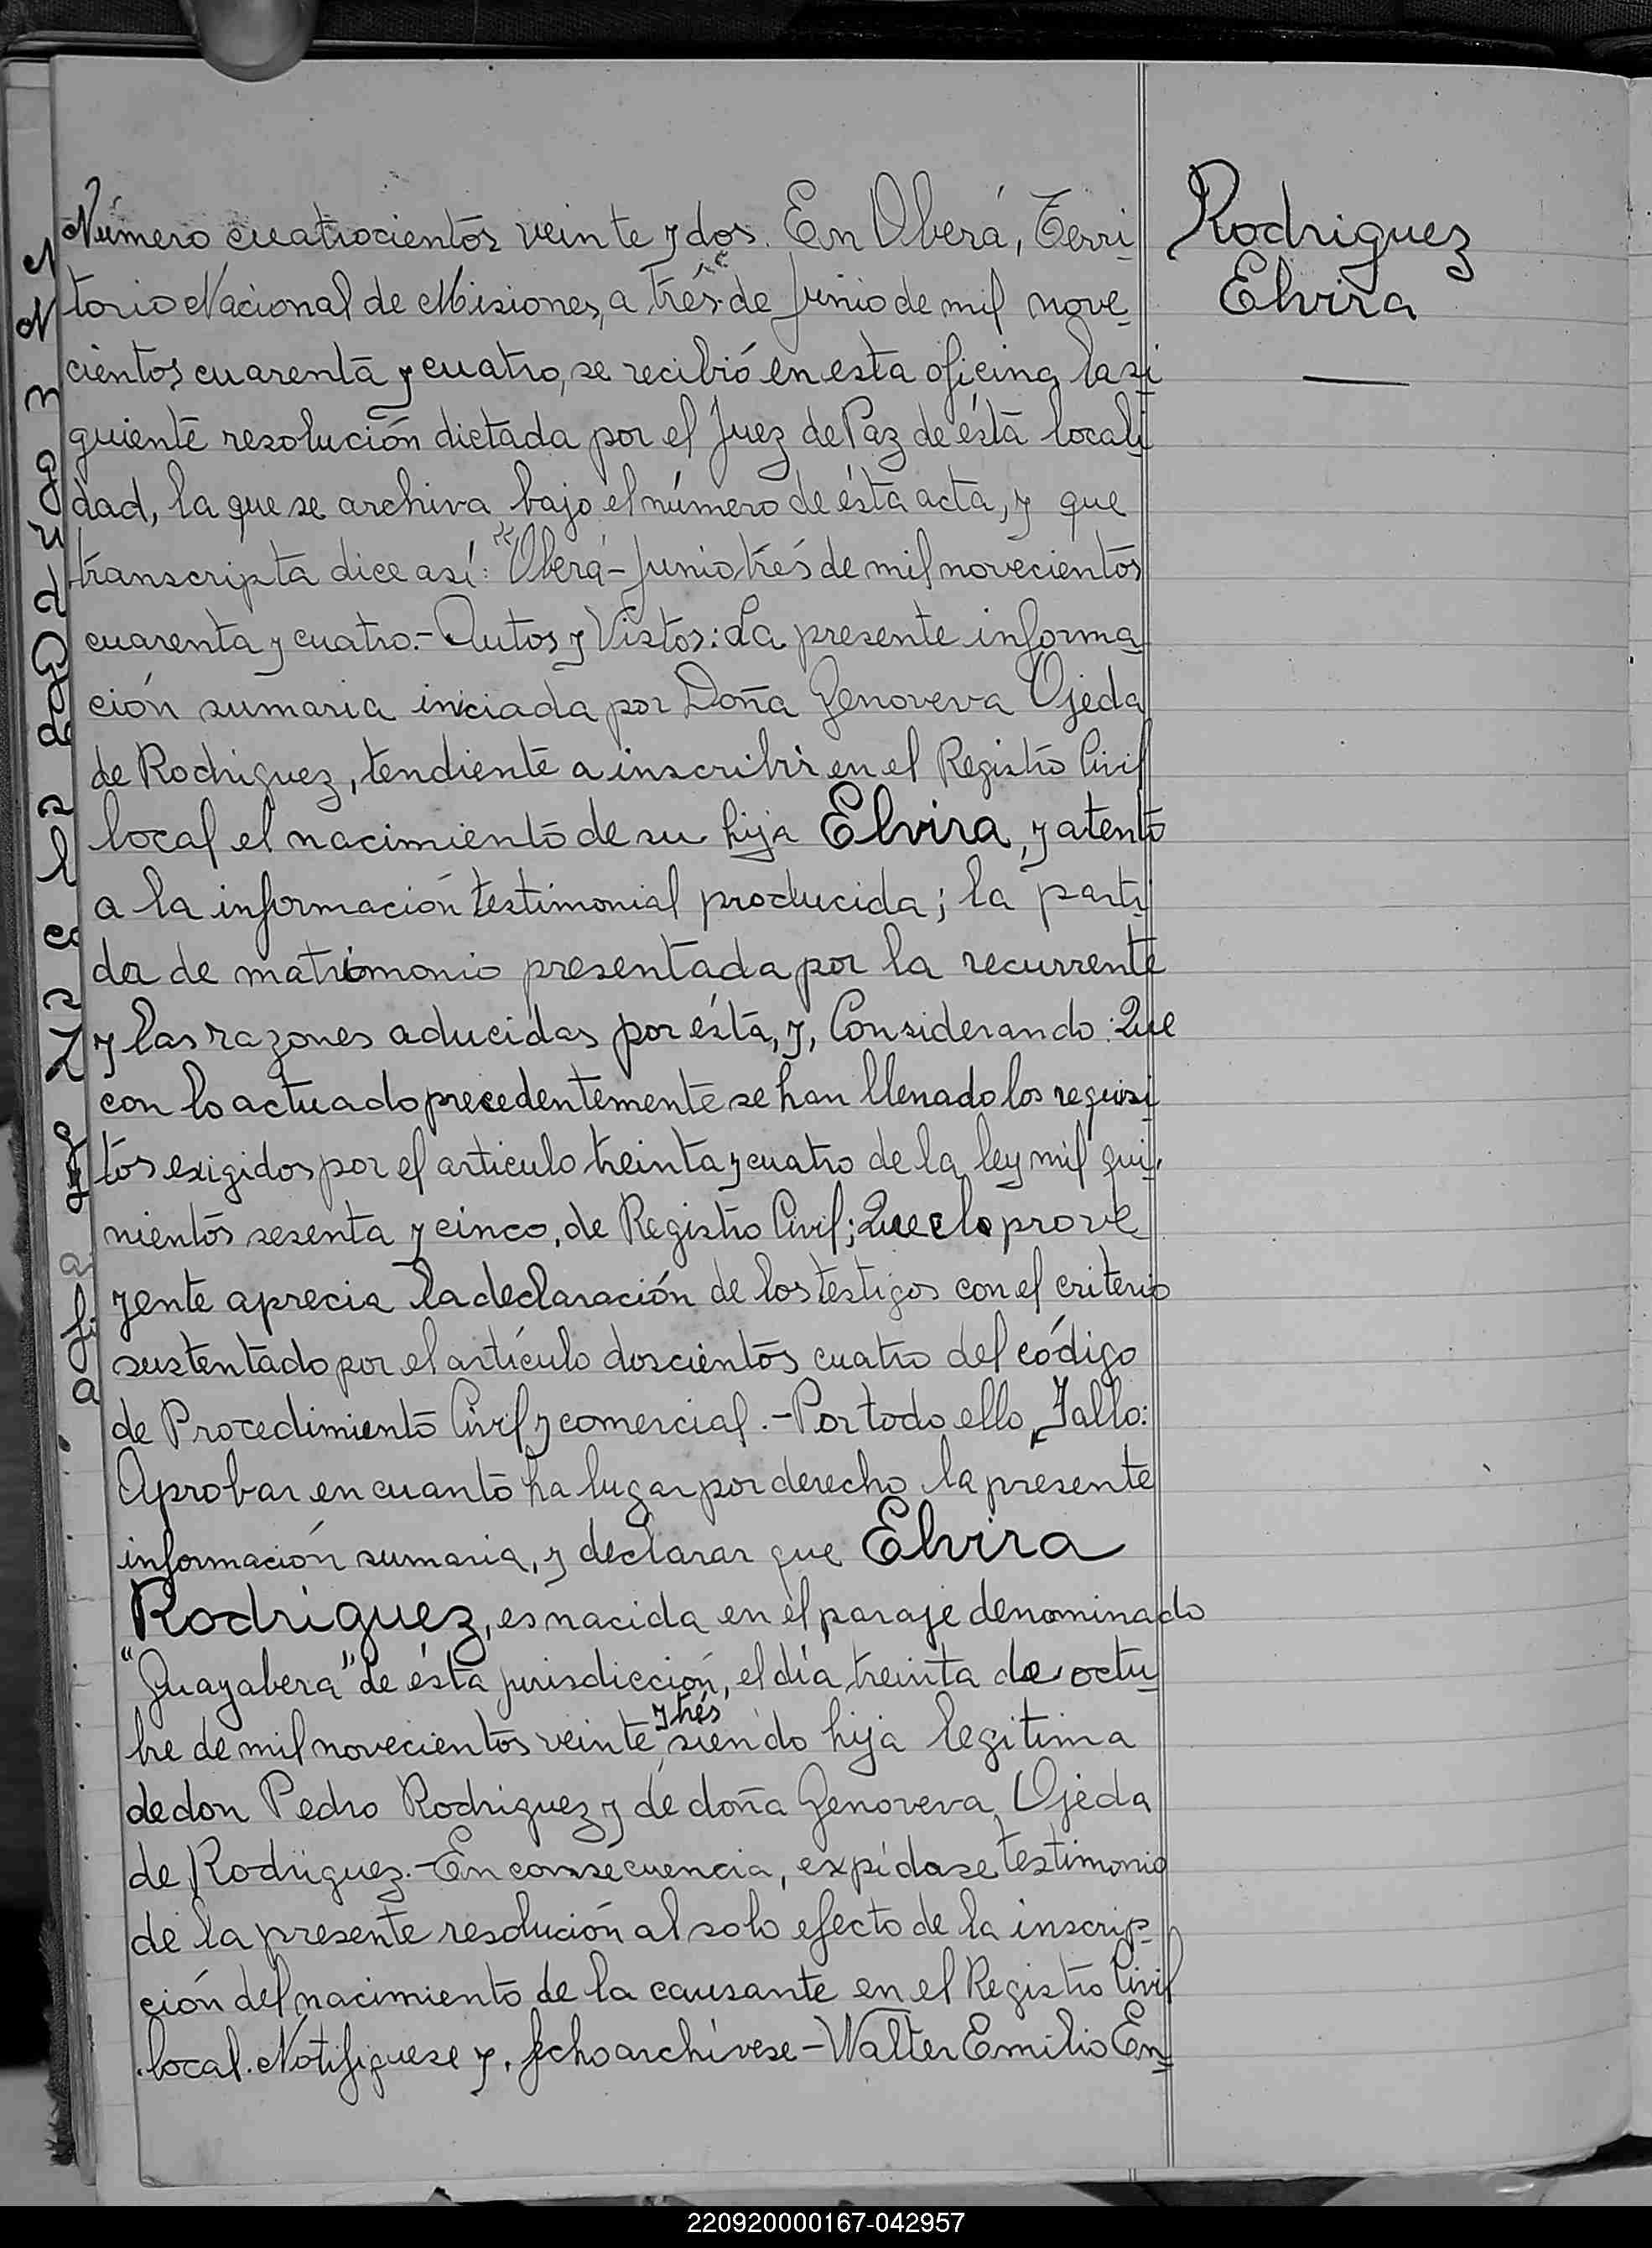 Rodriguez
Elvira
Número cuatrocientos veinte y dos. En Oberá, Terri-
torio Nacional de Misiones, a trés de Junio de mil nove-
cientos cuarenta y cuatro, se recibió en esta oficina la si-
guiente resolución dictada por el Juez de Paz de ésta locali-
dad, la que se archiva bajo el número de ésta acta, y que
transcripta dice así: "Oberá - Junio trés de mil novecientos
cuarenta y cuatro.- Autos y Vistos: La presente informa-
ción sumaria iniciada por Doña Genoveva Ojeda
de Rodriguez, tendiente a inscribir en el Registro Civil
local el nacimiento de su hija Elvira, y atento
a la información testimonial producida; la parti-
da de matrimonio presentada por la recurrente
y las razones aducidas por ésta, y, Considerando: Que
con lo actuado precedentemente se han llenado los requisi-
tos exigidos por el articulo treinta y cuatro de la ley mil qui-
nientos sesenta y cinco, de Registro Civil; Que el prove
yente aprecia la declaración de los testigos con el criterio
sustentado por el artículo doscientos cuatro del código
de Procedimiento Civil y comercial.- Por todo ello, Fallo:
Aprobar en cuanto ha lugar por derecho la presente
información sumaria, y declarar que Elvira
Rodriguez, es nacida en el paraje denominado
"Guayabera" de ésta jurisdicción, el día treinta de octu-
y trés
bre de mil novecientos veinte, siendo hija legitima
de don Pedro Rodriguez y de doña Genoveva Ojeda
de Rodriguez.- En consecuencia, expídase testimonio
de la presente resolución al solo efecto de la inscrip-
ción del nacimiento de la causante en el Registro Civil
local. Notifiquese y, fcho archívese - Walter Emilio En-
220920000167-042957